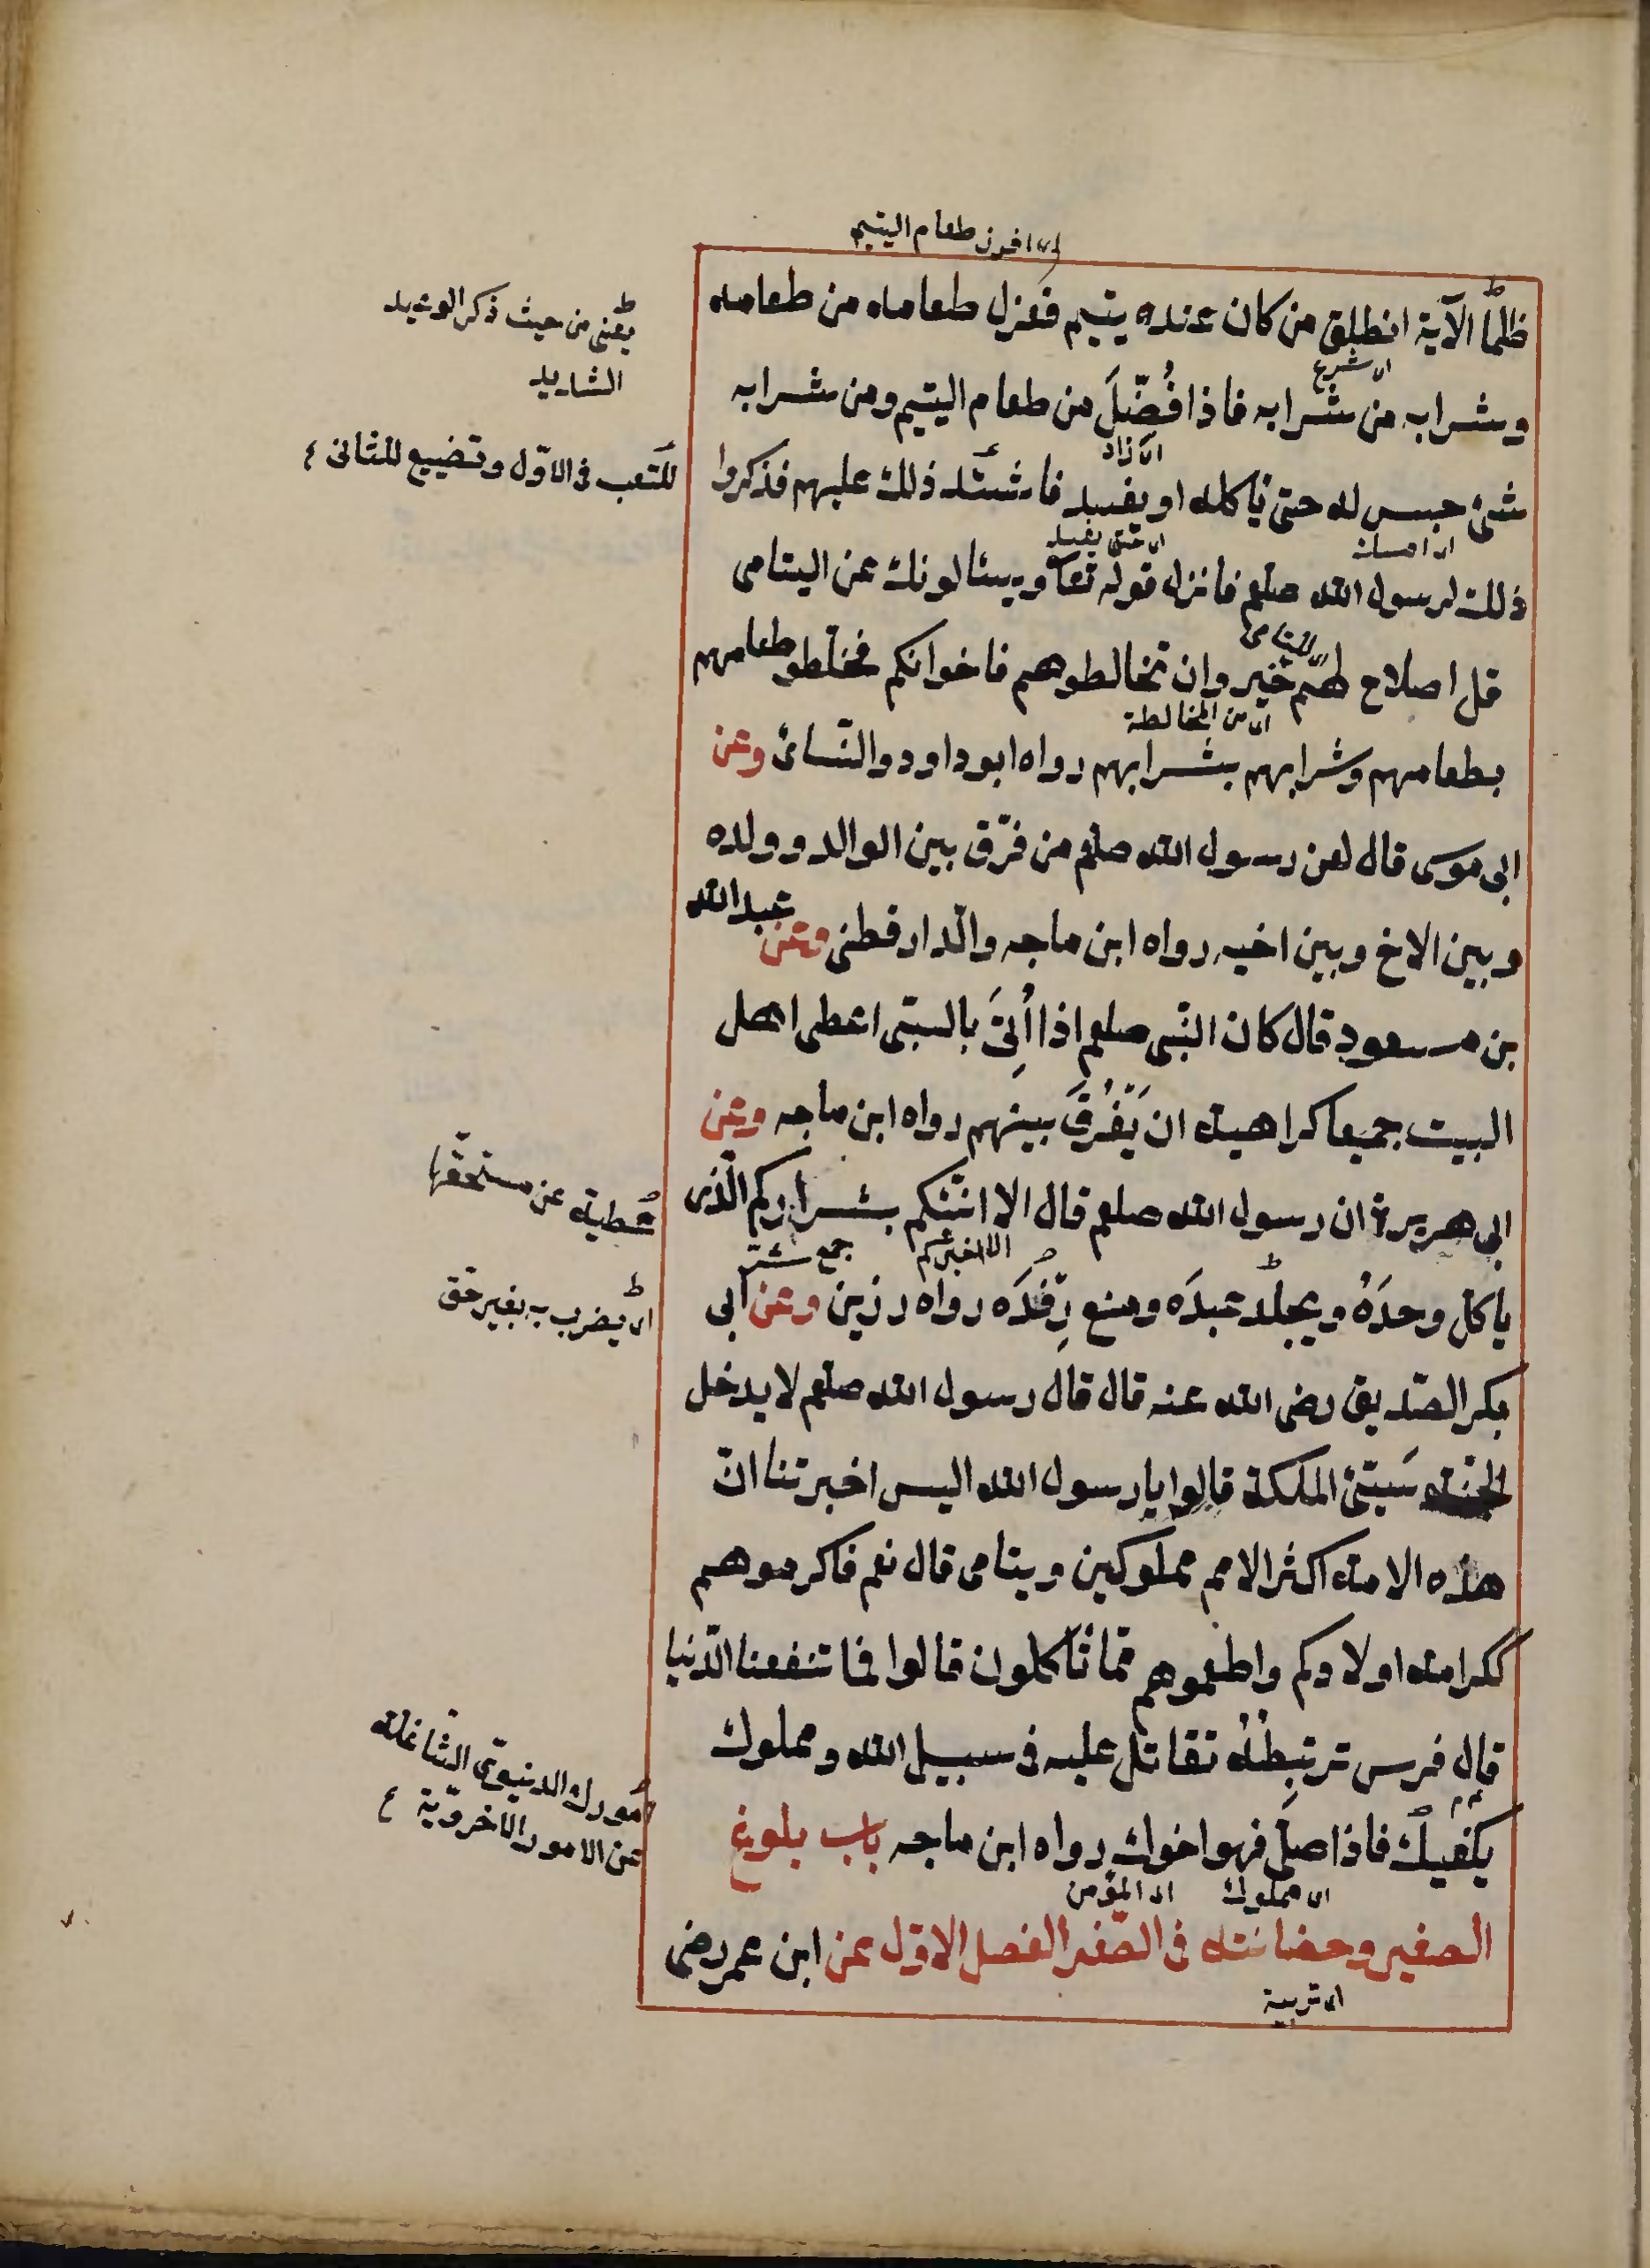 اى افرز طعام اليتيم
ظلمًا الآية انطلق من كان عنده يتيم فعزل طعامه من طعامه
اى شرع
وشرابه من شرابه فاذا فُضِّلَ من طعام اليتيم ومن شرابه
اى زاد
شئ حبس له حتى ياكله او يفسد فاشتد ذلك عليهم فذكروا
اى امسك
اى حتى يفسد
ذلك لرسول الله صلعم فانزل قوله تعا ويسئالونك عن اليتامى
اى لليتامى
قل اصلاح لهم خير وان تخالطوهم فاخوانكم فخلطو طعامهم
اى من المخالطة
بطعامهم وشرابهم بشرابهم رواه ابو داود والنّسائ وعن
ابى موسى قال لعن رسول الله صلعم من فرّق بين الوالد وولده
وبين الاخ وبين اخيه رواه ابن ماجه والدّارقطنى وعن عبد الله
بن مسعود قال كان النّبى صلعم اذا أُتِىَ بالسبى اعطى اهل
البيت جميعا كراهية ان يُفَرِّقَ بينهم رواه ابن ماجه وعن
ابى هريرة ان رسول الله صلعم قال الا انبّئكم بشراركم الّذى
الا اخبركم
جمع شر
ياكل وحدَهُ ويجلد عبدَه ومنع رِفْدَه رواه رزين وعن ابى
بكر الصّديق رضى الله عنه قال قال رسول الله صلعم لا يدخل
الجنّة سَيّئ الملكة قالوا يا رسول الله اليس اخبرتنا انّ
هذه الامة اكثر الامم مملوكين ويتامى قال نعم فاكرموهم
ككرامة اولادكم واطعموهم ممّا تأكلون قالوا فما تنفعنا الدّنيا
قال فرس ترتبطُهُ تقاتل عليه فى سبيل الله ومملوك
يكفيك فاذا صلّى فهو اخوك رواه ابن ماجه باب بلوغ
اى مملوك
اى المؤمن
الصغير وحضانته فى الصّغر الفصل الاوّل عن ابن عمر رضى
اى تربية
يعنى من حيث ذكر الوعيد
الشديد
للتعب فى الاوّل وتضييع للثانى ٤
عطيته عن مستحقّها
اى يضرب به بغير حق
امورك الدنيويّ الشاغلة
عن الامور الاخرويّة ٤